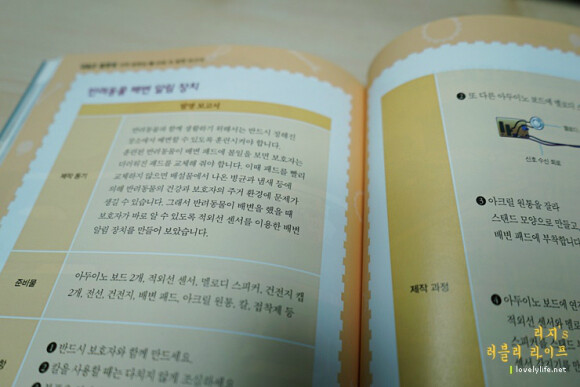 반려동물 배변 알림 장치
발명 보고서
제작 동기
반려동물과 함께 생활하기 위해서는 반드시 정해진
장소에서 배변할 수 있도록 훈련시켜야 합니다.
훈련된 반려동물이 배변 패드에 볼일을 보면 보호자는
더러워진 패드를 교체해 줘야 합니다. 이때 패드를 빨리
교체하지 않으면 배설물에서 나온 병균과 냄새 등에
의해 반려동물의 건강과 보호자의 주거 환경에 문제가
생길 수 있습니다. 그래서 반려동물이 배변을 했을 때
보호자가 바로 알 수 있도록 적외선 센서를 이용한 배변
알림 장치를 만들어 보았습니다.
준비물
아두이노 보드 2개, 적외선 센서, 멜로디 스피커, 건전지 캡
2개, 전선, 건전지, 배변 패드, 아크릴 원통, 칼, 접착제 등
❶ 반드시 보호자와 함께 만드세요.
❷ 칼을 사용할 때는 다치지 않게 조심하세요.
❷ 또 다른 아두이노 보드에 멜로디
신호 수신 회로
❸ 아크릴 원통을 잘라
스탠드 모양으로 만들고,
배변 패드에 부착합니다
제작 과정
❹ 아두이노 보드에 연
적외선 센서와 멜로
리지's
러블리 라이프
lovelylife.net